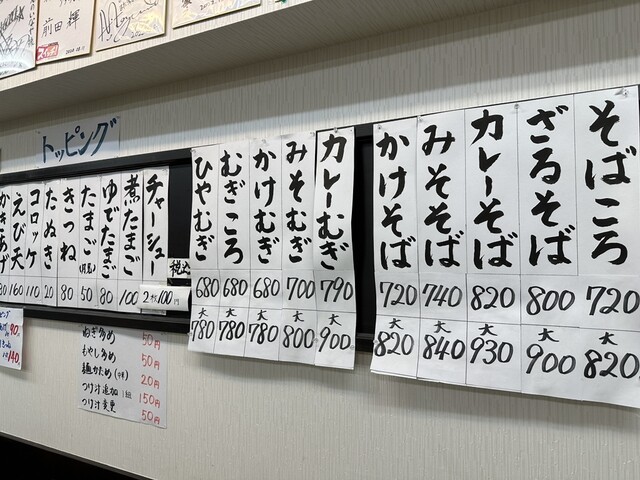 前田 輝
トッピング
そばころ
720
大
820
ざるそば
800
大
900
カレーそば
820
大
930
みそそば
740
大
840
かけそば
720
大
820
カレーむぎ
790
大
900
みそむぎ
700
大
800
かけむぎ
680
大
780
むぎころ
680
大
780
ひやむぎ
680
大
780
税込
チャーシュー
2枚100円
煮たまご
100
ゆでたまご
80
たまご
50
きつね
80
たぬき
20
コロッケ
110
えび天
160
かきあげ
ねぎ多め 50円
もやし多め 50円
麺かため 20円
つけ汁追加 150円
つけ汁変更 50円
140